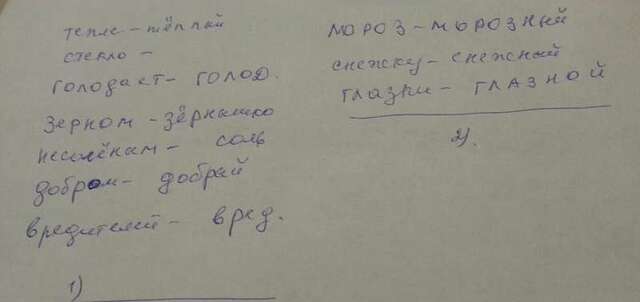 тепле - тёплый
стекло -
голодает - голод.
зерном - зёрнышко
несолёным - соль
добром - добрый
вредителей - вред.
1)
мороз - морозный
снежку - снежный
глазки - глазной
2).